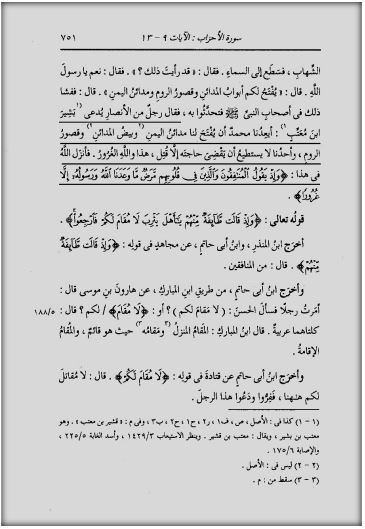 سورة الأحزاب : الآيات ٩ - ١٣ ٧٥١
الشِّهابِ ، فسَطَع إلى السماءِ . فقال : « قد رأيتَ ذلك ؟ » . فقال : نعم يا رسولَ
اللَّهِ . قال : « يُفْتَحُ لكم أبوابُ المدائنِ وقصورُ الرومِ ومدائنُ اليمنِ » . قال : ففشا
ذلك فى أصحابِ النبىِّ ﷺ فتحدَّثوا به ، فقال رجلٌ من الأنصارِ يُدعى (١بَشِيرَ
ابنَ مُعَتِّبٍ١) : أيعِدُنا محمدٌ أن يُفْتَحَ لنا مدائنُ اليمنِ (٢وبيضُ المدائنِ٢) وقصورُ
الرومِ ، وأحدُنا لا يستطيعُ أن يَقْضِىَ حاجتَه إلَّا قُتِل ، هذا واللَّهِ الغُرُورُ . فأنزَل اللَّهُ
فى هذا : ﴿وَإِذْ يَقُولُ الْمُنَٰفِقُونَ وَالَّذِينَ فِى قُلُوبِهِم مَّرَضٌ مَّا وَعَدَنَا اللَّهُ وَرَسُولُهُۥٓ إِلَّا
غُرُورًا﴾ .
قولُه تعالى : ﴿وَإِذْ قَالَت طَّآئِفَةٌ مِّنْهُمْ يَٰٓأَهْلَ يَثْرِبَ لَا مُقَامَ لَكُمْ فَارْجِعُوا۟﴾ .
أخرَج ابنُ المنذرِ ، وابنُ أبى حاتمٍ ، عن مجاهدٍ فى قولِه : ﴿وَإِذْ قَالَت طَّآئِفَةٌ
مِّنْهُمْ﴾ . قال : من المنافقين .
وأخرَج ابنُ أبى حاتمٍ ، من طريقِ ابنِ المباركِ ، عن هارونَ بنِ موسى قال :
أمَرتُ رجلًا فسأَل الحسنَ : ( لا مَقامَ لكم ) ؟ أو : ﴿لَا مُقَامَ﴾ / لكم ؟ قال : ١٨٨/٥
كلتاهما عربيةٌ . قال ابنُ المباركِ : المَقامُ المنزلُ (٣ومَقامُه٣) حيث هو قائمٌ ، والمُقامُ
الإقامةُ .
وأخرَج ابنُ أبى حاتمٍ عن قتادةَ فى قولِه : ﴿لَا مُقَامَ لَكُمْ﴾ . قال : لا مُقاتلَ
لكم ههنا ، ففِرُّوا ودَعُوا هذا الرجلَ .
(١ - ١) كذا فى : الأصل ، ص ، ف١ ، ر٢ ، ح١ ، ح٢ ، ب٣ ، وفى م : « قشير بن معتب » . وهو
معتب بن بشير ، ويقال : معتب بن قشير . وينظر الاستيعاب ١٤٢٩/٣ ، وأسد الغابة ٢٢٥/٥ ،
والإصابة ١٧٥/٦ .
(٢ - ٢) ليس فى : الأصل .
(٣ - ٣) سقط من : م .